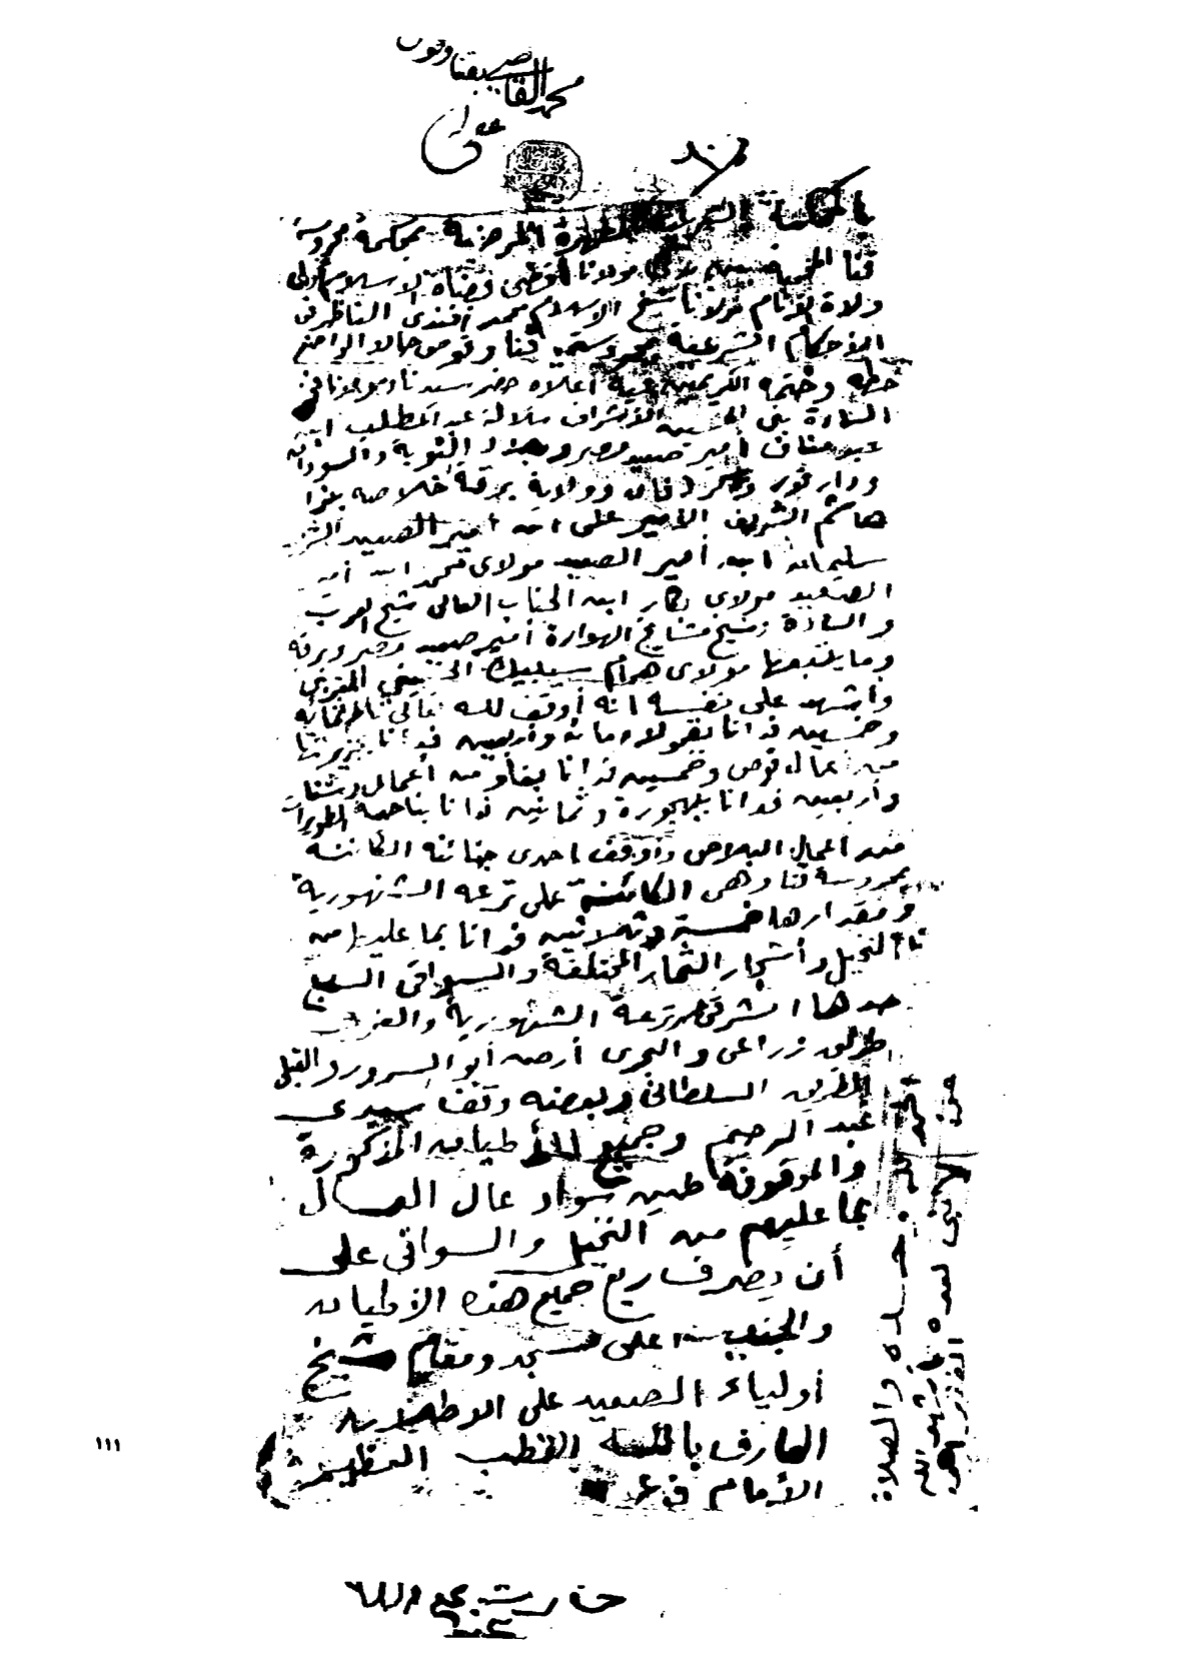 محمد القاضي بقنا وقوص
بالمحكمة الشرعية المطهرة المرضية بمحكمة محروسة
قنا المحمية بين يدي مولانا أقضى قضاة الاسلام أولى
ولاة الأنام مولانا شيخ الاسلام محمد افندى الناظر في
الأحكام الشرعية بمحروستي قنا وقوص حالا الواضع
خطه وختمه الكريمين فيه أعلاه حضر سيدنا ومولانا فخر
السادة بني الحسين الأشراف سلالة عبد المطلب ابن
عبد مناف أمير صعيد مصر وبلاد النوبة والسودان
ودار فور وكردفان وولاية برقة خلاصة بنوا
هاشم الشريف الأمير على ابن أمير الصعيد الشريف
سليمان ابن أمير الصعيد مولاى محمد ابن أمير
الصعيد مولاى بكار ابن الجناب العالى شيخ العرب
والسادة وشيخ مشايخ الهوارة أمير صعيد مصر وبرقة
وما يتبعها مولاى همام سيبيك الحسيني المغربى
وأشهد على نفسه انه أوقف لله تعالى ثلاثمائة
وخمسين فدانا بقمولا ومائة وأربعين فدانا بجزيرتها
من أعمال قوص وخمسين فدانا بفاو من أعمال دشنا
وأربعين فدانا ببهجورة وثمانين فدانا بناحية الطويرات
من أعمال البلاص وأوقف احدى جنائنه الكائنة
بمحروسة قنا وهى الكائنة على ترعه الشنهورية
ومقدارها خمسة وثلاثين فدانا بما عليها من
النخيل وأشجار الثمار المختلفة والسواقى السبع
حدها الشرقى ترعة الشنهورية والغربى
طريق زراعى والبحرى أرض أبو السرور والقبلى
الطريق السلطانى وبعضه وقف سيدى
عبد الرحيم وجميع الأطيان المذكورة
والموقوفة طين سواد عال العال
بما عليهم من النخيل والسواقى على
أن يصرف ريع جميع هذه الأطيان
والجنينة على مسجد ومقام شيخ
أولياء الصعيد على الاطلاق
العارف بالله القطب العظيم
الأمام
والصلاة
من لا نبى بعده
١١١